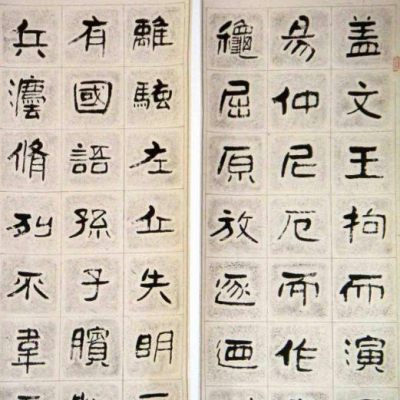 盖文王拘而演
易仲尼厄而作
龝屈原放逐迺
離騷左丘失明
有國語孫子臏
兵灋脩列不韋